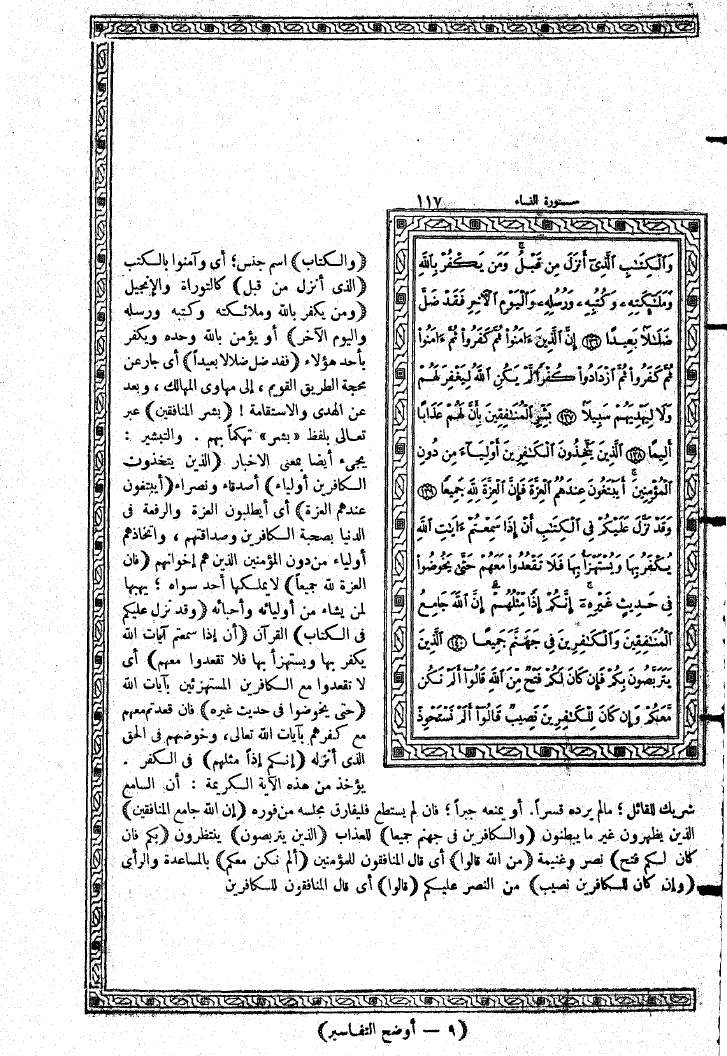 سورة النساء ١١٧
وَالْكِتَٰبِ الَّذِىٓ أَنزَلَ مِن قَبْلُ وَمَن يَكْفُرْ بِاللَّهِ
وَمَلَٰٓئِكَتِهِۦ وَكُتُبِهِۦ وَرُسُلِهِۦ وَالْيَوْمِ الْآخِرِ فَقَدْ ضَلَّ
ضَلَٰلًا بَعِيدًا ١٣٦ إِنَّ الَّذِينَ ءَامَنُوا ثُمَّ كَفَرُوا ثُمَّ ءَامَنُوا
ثُمَّ كَفَرُوا ثُمَّ ازْدَادُوا كُفْرًا لَّمْ يَكُنِ اللَّهُ لِيَغْفِرَ لَهُمْ
وَلَا لِيَهْدِيَهُمْ سَبِيلًا ١٣٧ بَشِّرِ الْمُنَٰفِقِينَ بِأَنَّ لَهُمْ عَذَابًا
أَلِيمًا ١٣٨ الَّذِينَ يَتَّخِذُونَ الْكَٰفِرِينَ أَوْلِيَآءَ مِن دُونِ
الْمُؤْمِنِينَ أَيَبْتَغُونَ عِندَهُمُ الْعِزَّةَ فَإِنَّ الْعِزَّةَ لِلَّهِ جَمِيعًا ١٣٩
وَقَدْ نَزَّلَ عَلَيْكُمْ فِى الْكِتَٰبِ أَنْ إِذَا سَمِعْتُمْ ءَايَٰتِ اللَّهِ
يُكْفَرُ بِهَا وَيُسْتَهْزَأُ بِهَا فَلَا تَقْعُدُوا مَعَهُمْ حَتَّىٰ يَخُوضُوا
فِى حَدِيثٍ غَيْرِهِۦٓ إِنَّكُمْ إِذًا مِّثْلُهُمْ إِنَّ اللَّهَ جَامِعُ
الْمُنَٰفِقِينَ وَالْكَٰفِرِينَ فِى جَهَنَّمَ جَمِيعًا ١٤٠ الَّذِينَ
يَتَرَبَّصُونَ بِكُمْ فَإِن كَانَ لَكُمْ فَتْحٌ مِّنَ اللَّهِ قَالُوٓا أَلَمْ نَكُن
مَّعَكُمْ وَإِن كَانَ لِلْكَٰفِرِينَ نَصِيبٌ قَالُوٓا أَلَمْ نَسْتَحْوِذْ
(والكتاب) اسم جنس؛ أى وآمنوا بالكتب
(الذى أنزل من قبل) كالتوراة والإنجيل
(ومن يكفر بالله وملائكته وكتبه ورسله
واليوم الآخر) أو يؤمن بالله وحده ويكفر
بأحد هؤلاء (فقد ضل ضلالا بعيداً) أى جار عن
محجة الطريق القويم، إلى مهاوى المهالك، وبعد
عن الهدى والاستقامة! (بشر المنافقين) عبر
تعالى بلفظ «بشر» تهكماً بهم. والتبشير:
يجىء أيضا بمعنى الاخبار (الذين يتخذون
الكافرين أولياء) أصدقاء ونصراء (أيبتغون
عندهم العزة) أى أيطلبون العزة والرفعة فى
الدنيا بصحبة الكافرين وصداقتهم، واتخاذهم
أولياء من دون المؤمنين الذين هم إخوانهم (فان
العزة لله جميعاً) لا يملكها أحد سواه؛ يهبها
لمن يشاء من أوليائه وأحبائه (وقد نزل عليكم
فى الكتاب) القرآن (أن إذا سمعتم آيات الله
يكفر بها ويستهزأ بها فلا تقعدوا معهم) أى
لا تقعدوا مع الكافرين المستهزئين بآيات الله
(حتى يخوضوا فى حديث غيره) فان قعدتم معهم
مع كفرهم بآيات الله تعالى، وخوضهم فى الحق
الذى أنزله (إنكم إذاً مثلهم) فى الكفر.
يؤخذ من هذه الآية الكريمة: أن السامع
شريك للقائل؛ مالم يرده قسراً. أو يمنعه جبراً؛ فان لم يستطع فليفارق مجلسه من فوره (إن الله جامع المنافقين)
الذين يظهرون غير ما يبطنون (والكافرين فى جهنم جميعا) للعذاب (الذين يتربصون) ينتظرون (بكم فان
كان لكم فتح) نصر وغنيمة (من الله قالوا) أى قال المنافقون للمؤمنين (ألم نكن معكم) بالمساعدة والرأى
(وإن كان للكافرين نصيب) من النصر عليكم (قالوا) أى قال المنافقون للكافرين
(٩ — أوضح التفاسير)